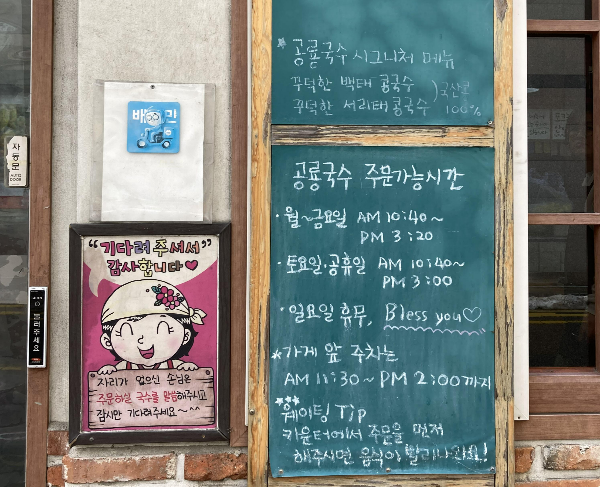 * 공룡국수 시그니처 메뉴
꾸덕한 백태 콩국수
꾸덕한 서리태 콩국수
국산콩
100%
공룡국수 주문가능시간
· 월~금요일 AM 10:40~
PM 3:20
· 토요일·공휴일 AM 10:40~
PM 3:00
· 일요일 휴무, Bless you♡
*가게 앞 주차는
AM 11:30~PM 2:00까지
***
웨이팅 Tip
카운터에서 주문을 먼저
해주시면 음식이 빨리나와요!
배민
자동문
AUTO DOOR
"기다려 주셔서"
감사합니다♥
자리가 없으신 손님은
주문하실 국수를 말씀해주시고
잠시만 기다려주세요~^^
눌러주세요